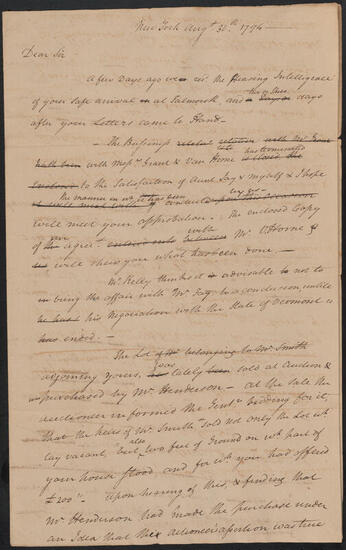 New York Augt 30th 1794
Dear Sir
A few Days ago we rec. the Pleasing Intelligence
of your safe arrival in at Falmouth, and two or three a Days or days
after your Letters came to Hand
The Business with Mr
hath been with Messrs Grant & Van Horne has terminated is closed the
to the Satisfaction of Aunt Lay & myself & I hope
the manner in wh it has been conducted by us
will meet your approbation. The enclosed Copy
of the an agreet entered into between with Mr V. Horne &
us will shew you what has been done
Mr Kelly thinks it is adviseable to not to
bring the affair with Mr Fay to a conclusion until
he has his Negociation with the State of Vermont is
has ended.
The Lot of Mr belonging to Mr Smith
adjoining yours, has was lately been sold at Auction &
purchased by Mr Henderson - at the Sale the
auctioneer informed the Gentn bidding for it,
that the heirs of Mr Smith sold not only the Lot wh
lay vacant, but also two feet of Ground on wh part of
your house stood and for wh you had offered
£200 - Upon hearing of this, & finding that
Mr Henderson had made the purchase under
an Idea that the auctioneers assertion was true